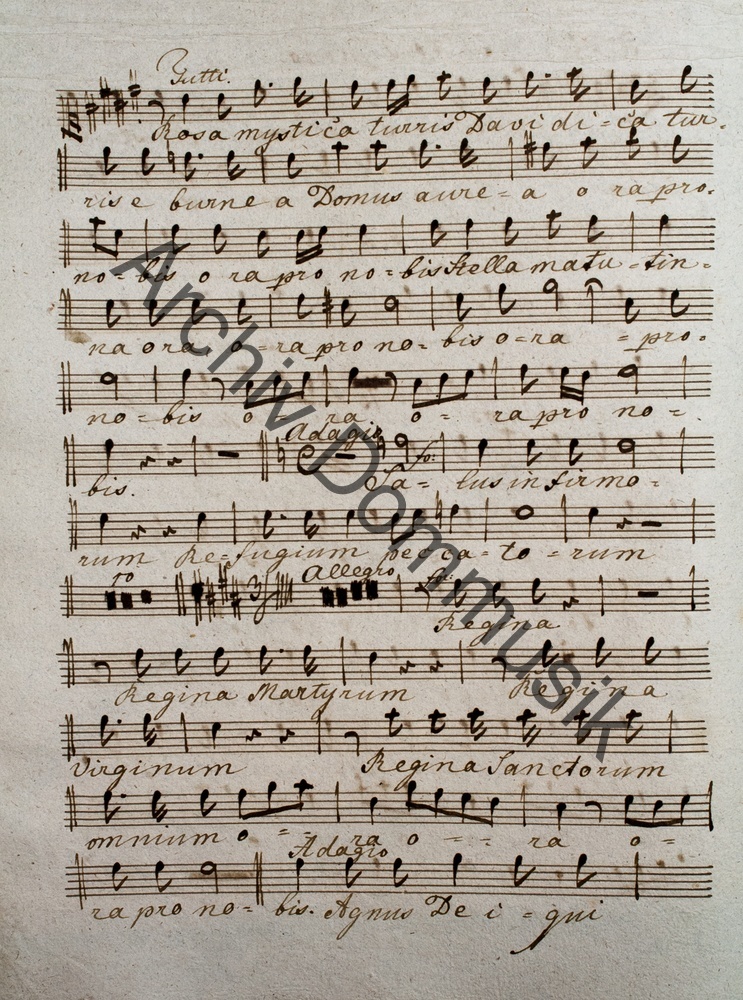 Tutti.
Rosa mystica turris Davi di = ca tur.
ris e burne a Domus aure = a o ra pro.
no = bis o ra pro no = bis Stella matu = tin =
na o ra o = ra pro no = bis o = ra = pro.
no = bis o = ra o = ra pro no =
Adagio
fo:
bis. Sa = lus in firmo =
rum Re = fugium pec ca = to = rum
10
Allegro
fo:
Regina
Regina Martyrum Regina
Virginum Regina Sanctorum
omnium o = = ra o = = ra o =
Adagio
ra pro no = bis. Agnus De i = qui
Archiv Dommusik